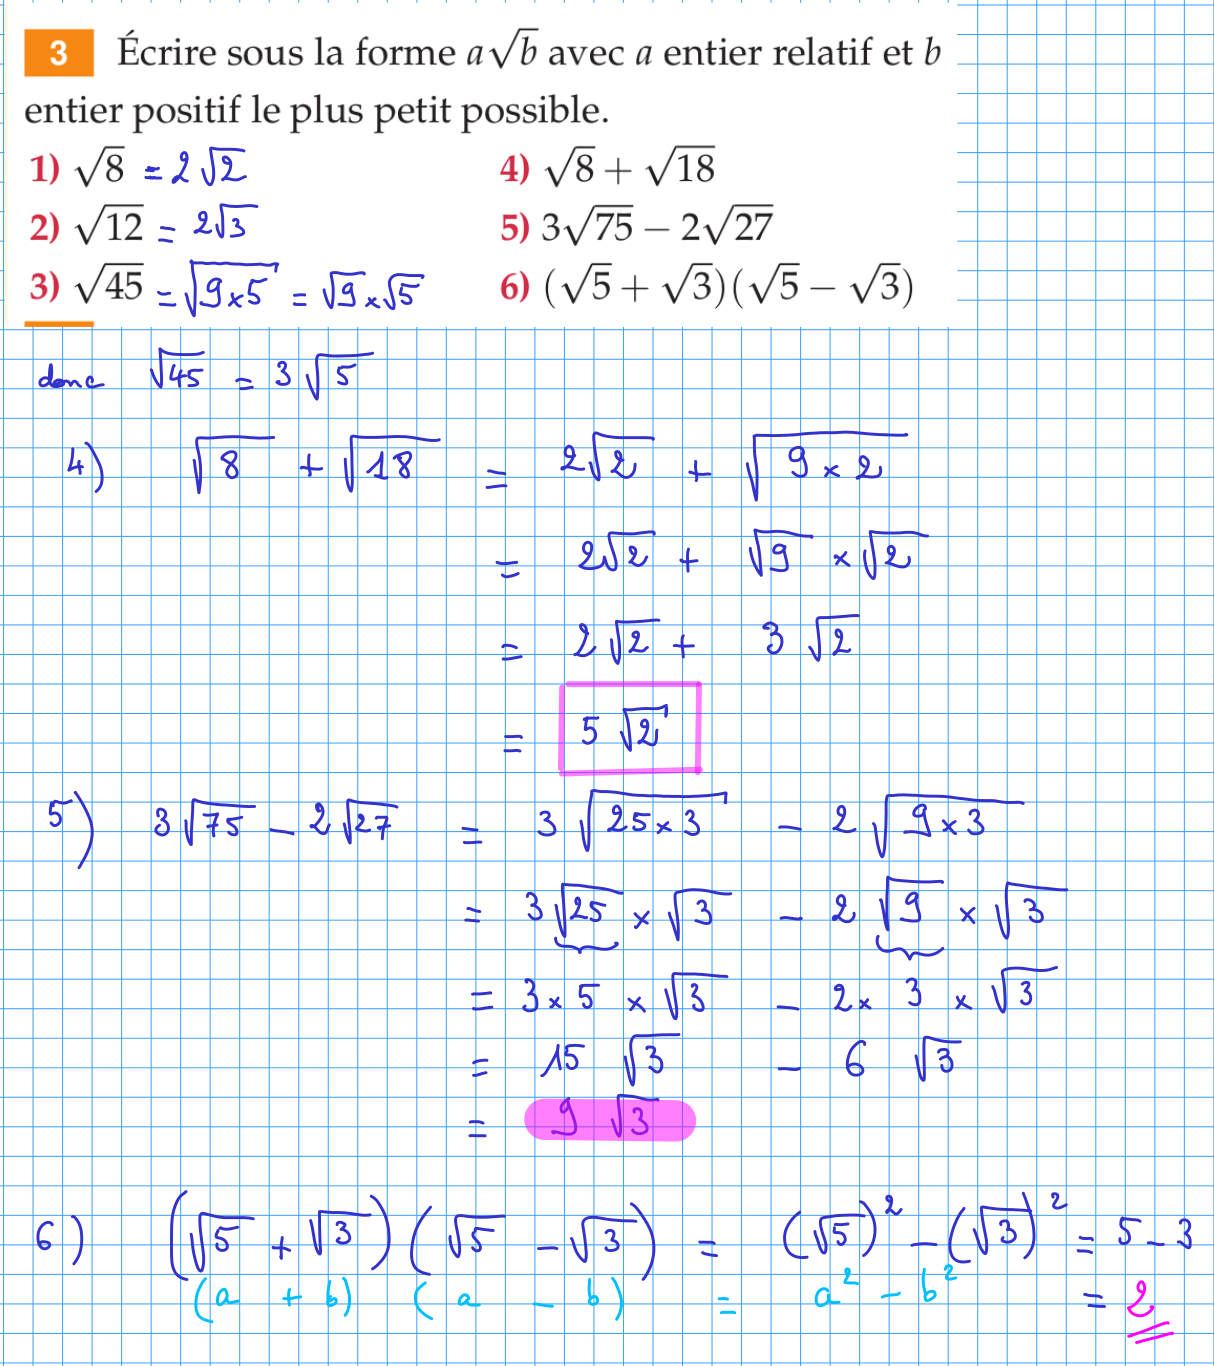 3 Écrire sous la forme a√b avec a entier relatif et b
entier positif le plus petit possible.
1) √8 = 2√2
2) √12 = 2√3
3) √45 = √(9×5) = √9 × √5
4) √8 + √18
5) 3√75 − 2√27
6) (√5 + √3)(√5 − √3)
donc √45 = 3√5
4) √8 + √18 = 2√2 + √(9×2)
= 2√2 + √9 × √2
= 2√2 + 3√2
= 5√2
5) 3√75 − 2√27 = 3√(25×3) − 2√(9×3)
= 3√25 × √3 − 2√9 × √3
= 3×5×√3 − 2×3×√3
= 15√3 − 6√3
= 9√3
6) (√5 + √3)(√5 − √3) = (√5)² − (√3)² = 5 − 3
(a + b) (a − b) = a² − b² = 2